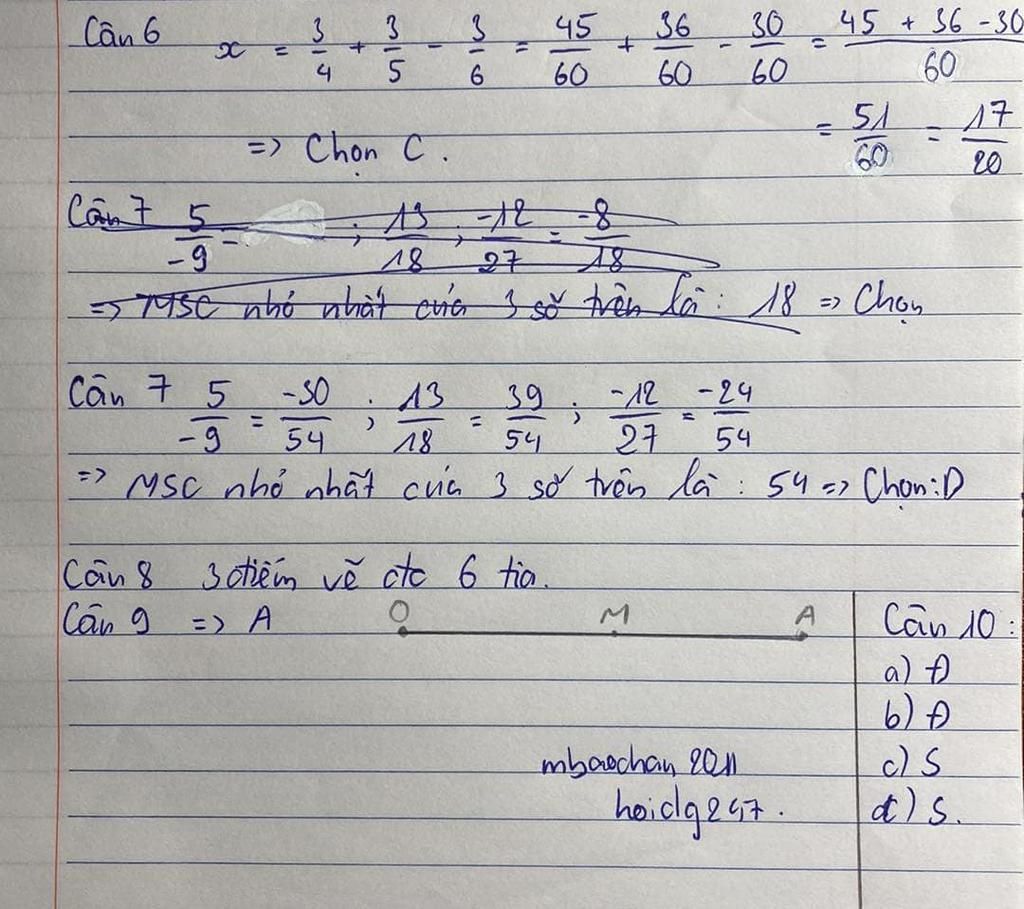 Câu 6 x = 3/4 + 3/5 - 3/6 = 45/60 + 36/60 - 30/60 = 45 + 36 - 30/60
= 51/60 = 17/20
=> Chọn C.
Câu 7 5/-9 - ; 13/18 ; -12/27 = -8/18
=> MSC nhỏ nhất của 3 số trên là : 18 => Chọn
Câu 7 5/-9 = -30/54 ; 13/18 = 39/54 ; -12/27 = -24/54
=> MSC nhỏ nhất của 3 số trên là : 54 => Chọn : D
Câu 8 3 điểm vẽ đc 6 tia.
Câu 9 => A
O M A
Câu 10 :
a) Đ
b) Đ
c) S
d) S.
mbaochan 2011
hoidg247.